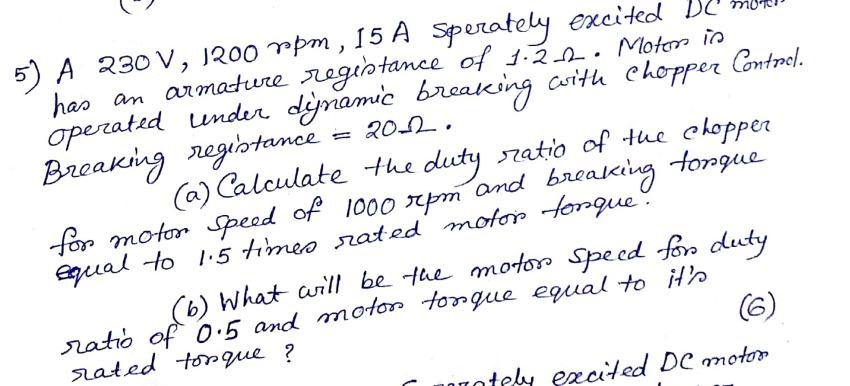 5) A 230V, 1200 rpm, 15 A Sperately excited DC motor
has an armature registance of 1.2 Ω. Motor is
operated under dynamic breaking with chopper Control.
Breaking registance = 20Ω.
(a) Calculate the duty ratio of the chopper
for motor speed of 1000 rpm and breaking torque
equal to 1.5 times rated motor torque.
(b) What will be the motor speed for duty
ratio of 0.5 and motor torque equal to it's
rated torque ? (6)
excited DC motor